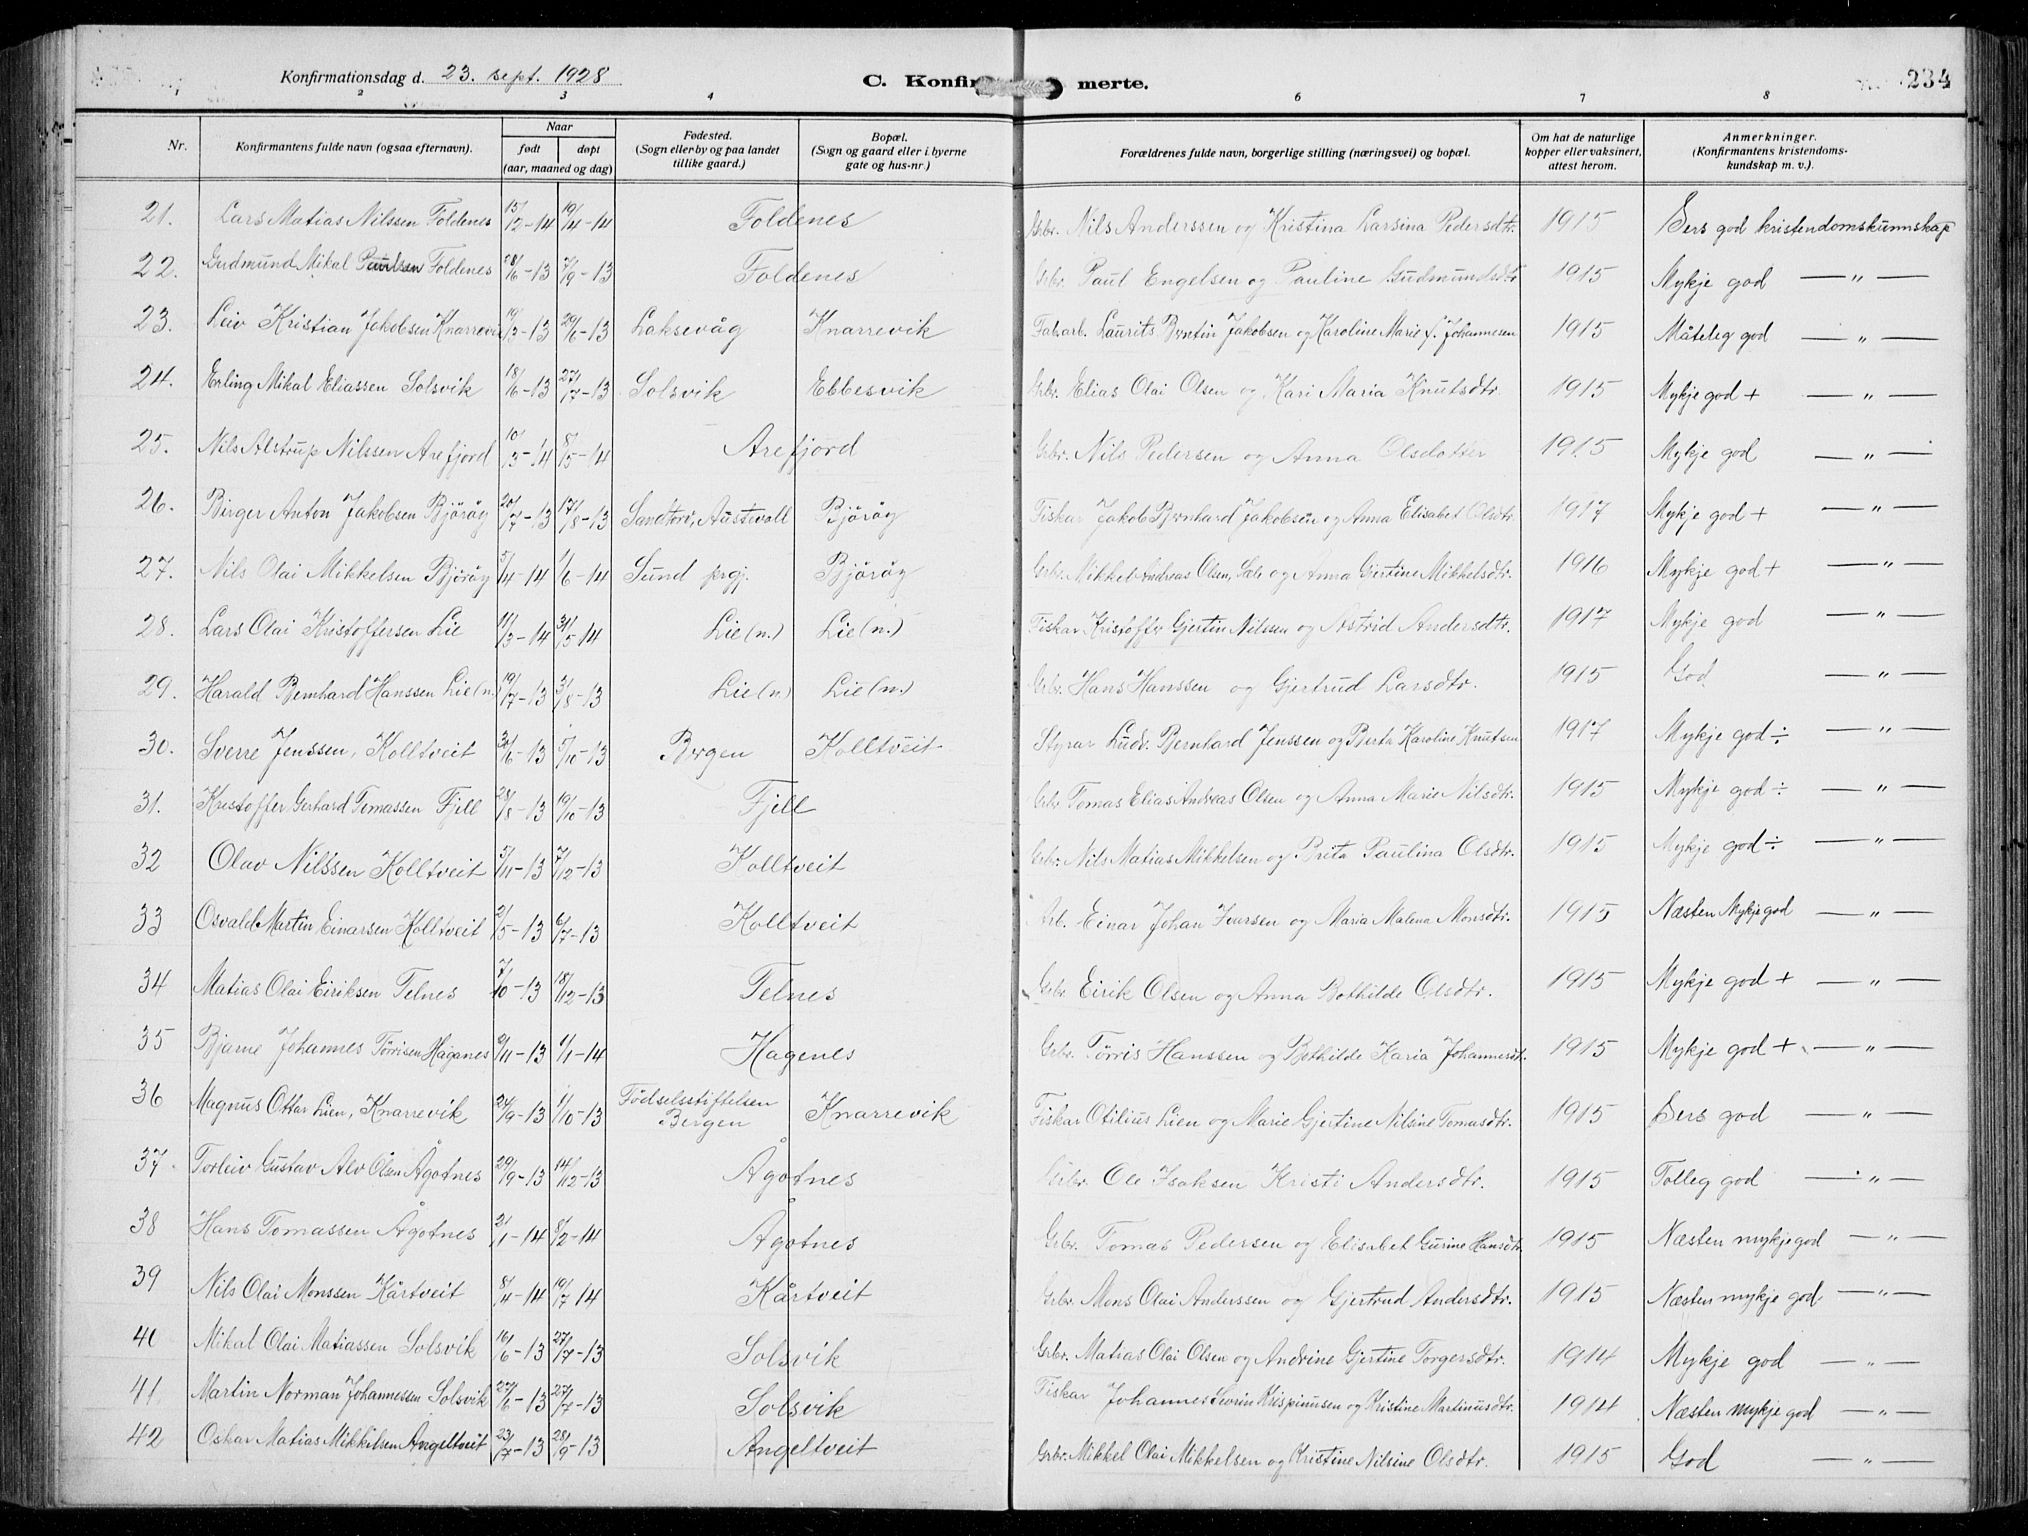 Konfirmationsdag d. 23. sept. 1928
C. Konfir merte.
234
1 2 3 4 6 7 8
Nr. Konfirmantens fulde navn (ogsaa efternavn). Naar født døpt (aar, maaned og dag) Fødested. (Sogn eller by og paa landet tillike gaard.) Bopæl. (Sogn og gaard eller i byerne gate og hus-nr.) Forældrenes fulde navn, borgerlige stilling (næringsvei) og bopæl. Om hat de naturlige kopper eller vaksinert, attest herom. Anmerkninger. (Konfirmantens kristendoms-kundskap m. v.).
21. Lars Matias Nilssen Foldenes 15/2-14 19/4-14 Foldenes Grbr. Nils Anderssen og Kristina Larsina Pedersdtr. 1915 Sers god kristendomskunnskap
22. Gudmund Mikal Paulsen Foldenes 28/6-13 7/9-13 Foldenes Grbr. Paul Engelsen og Pauline Gudmundsdtr 1915 Mykje god — " —
23. Leiv Kristian Jakobsen Knarrevik 19/3-13 29/6-13 Laksevåg Knarrevik Fab.arb. Laurits Berntin Jakobsen og Karoline Marie f. Johannesen 1915 Måteleg god — " —
24. Erling Mikal Eliassen Solsvik 18/6-13 27/7-13 Solsvik Ebbesvik Grbr. Elias Olai Olsen og Kari Maria Knutsdtr. 1915 Mykje god + — " —
25. Nils Alstrup Nilssen Arefjord 10/3-14 8/5-14 Arefjord Grbr. Nils Pedersen og Anna Olsdotter 1915 Mykje god — " —
26. Birger Anton Jakobsen Bjørøy 20/7-13 17/8-13 Sandtorv, Austevoll Bjørøy Fiskar Jakob Bernhard Jakobsen og Anna Elisabet Olsdtr. 1917 Mykje god + — " —
27. Nils Olai Mikkelsen Bjørøy 5/4-14 1/6-14 Sund prgj. Bjørøy Grbr. Mikkel Andreas Olsen, og Anna Gjertine Mikkelsdtr. 1916 Mykje god + — " —
28. Lars Olai Kristoffersen Lie 11/3-14 31/5-14 Lie (n.) Lie (n.) Fiskar Kristoffer Gjertin Nilsen og Astrid Andersdtr. 1917 Mykje god — " —
29. Harald Bernhard Hanssen Lie (n.) 19/7-13 3/8-13 Lie (n) Lie (n.) Grbr. Hans Hanssen og Gjertrud Larsdtr. 1915 God — " —
30. Sverre Jenssen, Kolltveit 30/6-13 5/10-13 Bergen Kolltveit Styrar Ludv. Bernhard Jenssen og Berta Karoline Knutsen 1917 Mykje god ÷ — " —
31. Kristoffer Gerhard Tomassen Fjell 28/8-13 19/10-13 Fjell Grbr Tomas Elias Andreas Olsen og Anna Marie Nilsdtr. 1915 Mykje god ÷ — " —
32 Olav Nilssen Kolltveit 5/11-13 7/12-13 Kolltveit Grbr. Nils Matias Mikkelsen og Brita Paulina Olsdtr. 1915 Mykje god ÷ — " —
33 Osvald Martin Einarsen Kolltveit 2/5-13 6/7-13 Kolltveit Arb. Einar Johan Iversen og Maria Malena Monsdtr. 1915 Næsten Mykje god — " —
34 Matias Olai Eiriksen Telnes 7/10-13 18/12-13 Telnes Grbr. Eirik Olsen og Anna Bothilde Olsdtr. 1915 Mykje god + — " —
35 Bjarne Johannes Tørrisen Haganes 9/11-13 1/1-14 Hagenes Grbr. Tørris Hanssen og Bothilde Karia Johannesdt. 1915 Mykje god + — " —
36 Magnus Ottar Lien, Knarrevik 24/9-13 1/10-13 Fødselsstiftelsen Bergen Knarrevik Fiskar Otilius Lien og Marie Gjertine Nilsine Tomasdtr. 1915 Sers god — " —
37. Torleiv Gustav Alv Olsen Ågotnes 29/9-13 14/12-13 Ågotnes Grbr. Ole Isaksen Kristi Andersdtr. 1915 Tolleg god — " —
38 Hans Tomassen Ågotnes 2/1-14 8/2-14 Ågotnes Grbr. Tomas Pedersen og Elisabet Gurine Hansdtr. 1915 Næsten mykje god — " —
39 Nils Olai Monssen Kårtveit 8/4-14 19/7 14 Kårtveit Grbr. Mons Olai Anderssen og Gjertrud Andersdtr. 1915 Næsten mykje god — " —
40 Mikal Olai Matiassen Solsvik 16/6-13 27/7-13 Solsvik Grbr. Matias Olai Olsen og Andrine Gjertine Torgersdtr. 1914 Mykje god — " —
41. Martin Norman Johannessen Solsvik 27/6-13 27/7-13 Solsvik Fiskar Johannes Severin Krispinusen og Kristine Martinusdtr. 1914 Næsten mykje god — " —
42 Oskar Matias Mikkelsen Angeltveit 23/7-13 28/9-13 Angeltveit Grbr. Mikkel Olai Mikkelsen og Kristine Nilsine Olsdtr. 1915 God — " —